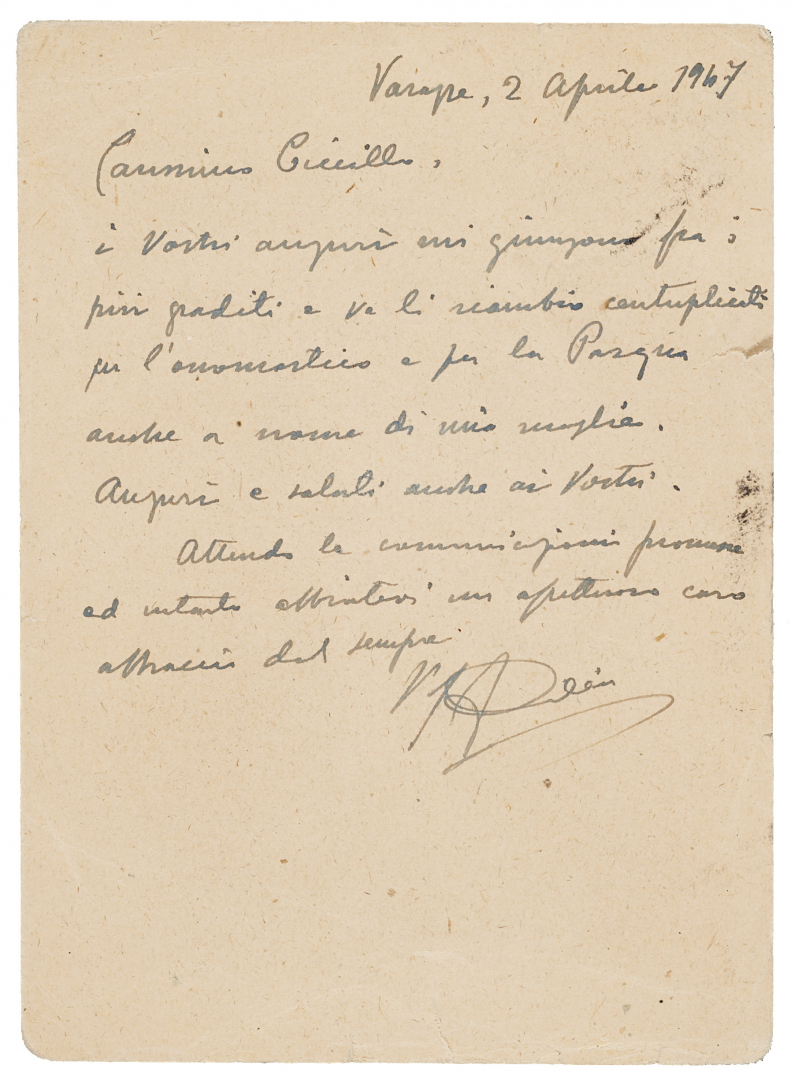 Varazze, 2 Aprile 1947
Carissimo Ciccillo,
i Vostri auguri mi giungono fra i
più graditi e ve li ricambio centuplicati
per l'onomastico e per la Pasqua
anche a nome di mia moglie.
Auguri e saluti anche ai Vostri.
Attendo le comunicazioni promesse
ed intanto abbiatevi un affettuoso caro
abbraccio dal sempre